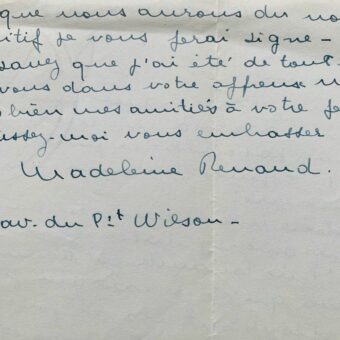 que nous aurons du no
itif je vous ferai signe -
savez que j'ai été de tout
vous dans votre affreux m
bien mes amitiés à votre fe
issez-moi vous embrasser
Madeleine Renaud.
av. du Pt Wilson -